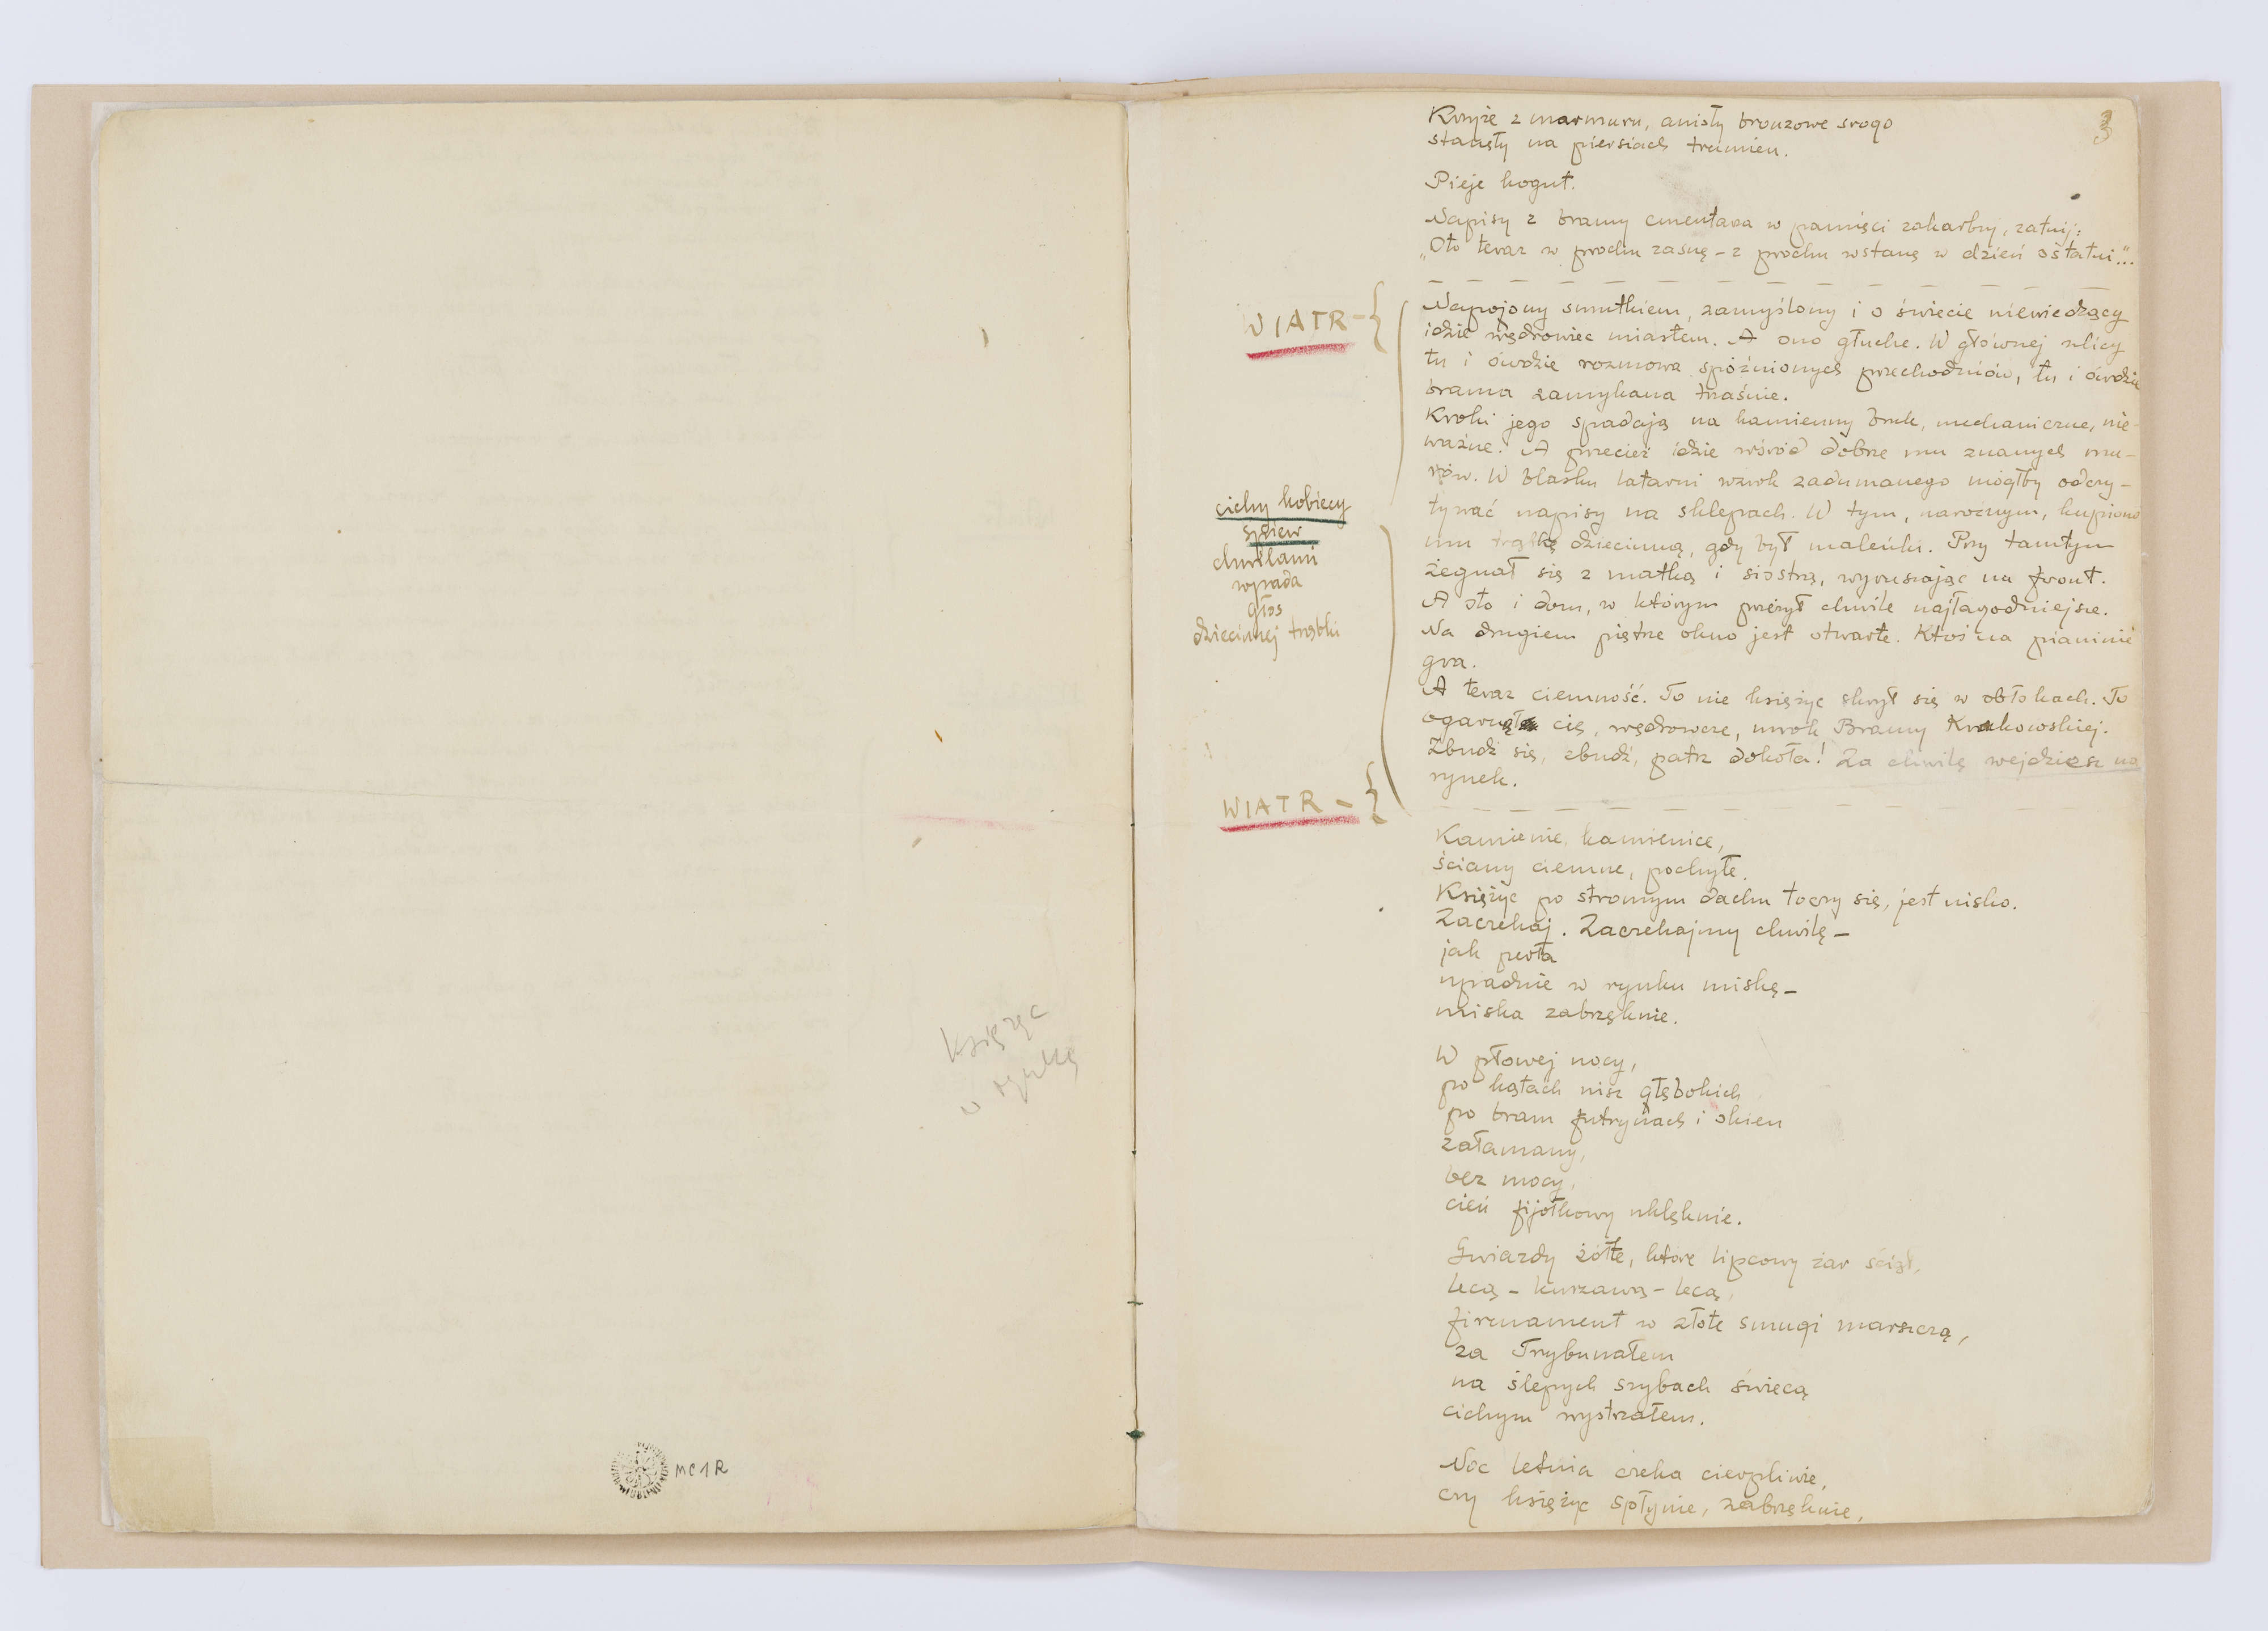 Księżyc
w rynku
MC1R
3
Krzyże z marmuru, anioły bronzowe srogo
stanęły na piersiach trumien.
Pieje kogut.
Napisy z bramy cmentarza w pamięci zakarbuj, zatnij:
„Oto teraz w prochu zasnę – z prochu wstanę w dzień ostatni..."
WIATR –
Napojony smutkiem, zamyślony i o świecie niewiedzący
idzie wędrowiec miastem. A ono głuche. W głównej ulicy
tu i ówdzie rozmowa spóźnionych przechodniów, tu i ówdzie
brama zamykana trzaśnie.
Kroki jego spadają na kamienny bruk, mechaniczne, nie-
ważne. A przecież idzie wśród dobrze mu znanych mu-
rów. W blasku latarni wzrok zadumanego mógłby odczy-
tywać napisy na sklepach. W tym, narożnym, kupiono
mu trąbkę dziecinną, gdy był maleńki. Przy tamtym
żegnał się z matką i siostrą, wyruszając na front.
A oto i dom, w którym przeżył chwile najłagodniejsze.
Na drugiem piętrze okno jest otwarte. Ktoś na pianinie
gra.
A teraz ciemność. To nie księżyc skrył się w obłokach. To
ogarnął cię, wędrowcze, mrok Bramy Krakowskiej.
Zbudź się, zbudź, patrz dokoła! Za chwilę wejdziesz na
rynek.
cichy kobiecy
śpiew
chwilami
wpada
głos
dziecinnej trąbki
WIATR –
Kamienie, kamienice,
ściany ciemne, pochyłe.
Księżyc po stromym dachu toczy się, jest nisko.
Zaczekaj. Zaczekajmy chwilę –
jak perła
upadnie w rynku miskę –
miska zabrzęknie.
W płowej nocy,
po kątach nisz głębokich
po bram futrynach i okien
załamany,
bez mocy,
cień fijołkowy uklęknie.
Gwiazdy żółte, które lipcowy żar ściął,
lecą – kurzawą – lecą,
firmament w złote smugi marszczą,
za Trybunałem
na ślepych szybach świecą
cichym wystrzałem.
Noc letnia czeka cierpliwie,
czy księżyc spłynie, zabrzęknie,